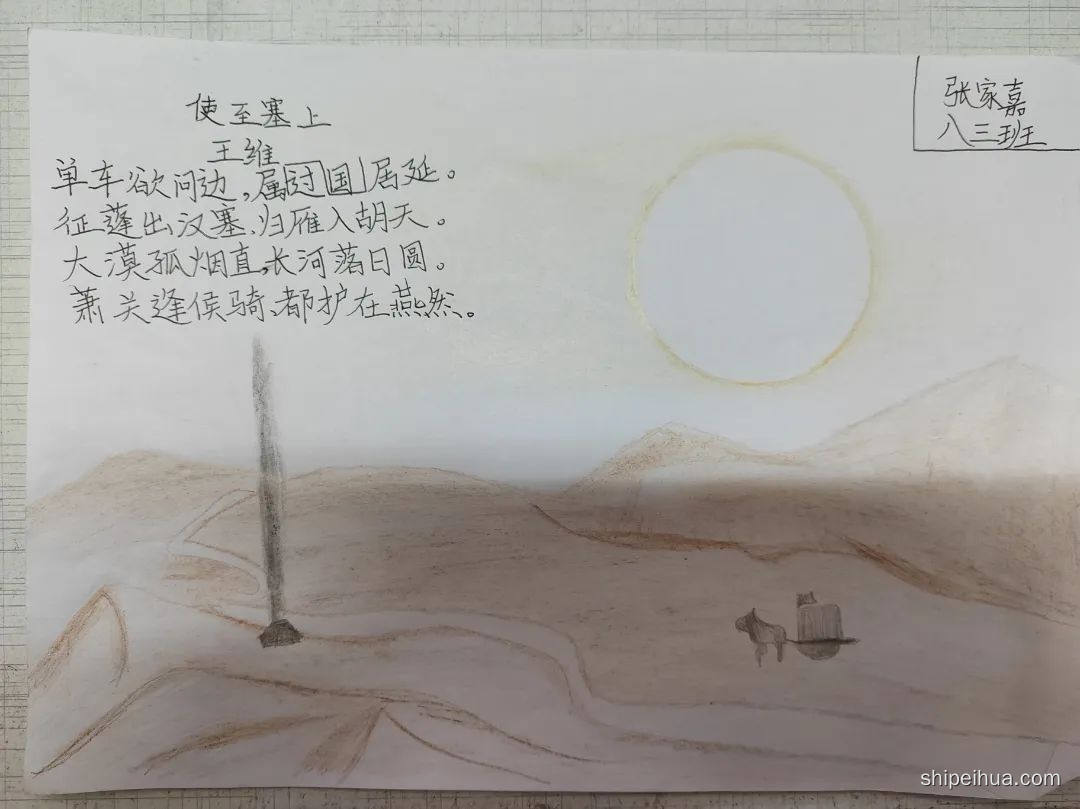 使至塞上
王维
单车欲问边,属过国居延。
征蓬出汉塞,归雁入胡天。
大漠孤烟直,长河落日圆。
萧关逢侯骑,都护在燕然。
张家嘉
八三班
shipeihua.com